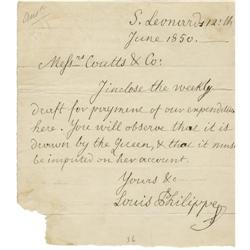 Ansd
S. Leonards, 12th
June 1850.
Messrs Coutts & Co:
I inclose the weekly
draft for payment of our expenditure
here. You will observe that it is
drawn by the Queen, & that it must
be imputed on her account.
Yours &c
Louis Philippe
36